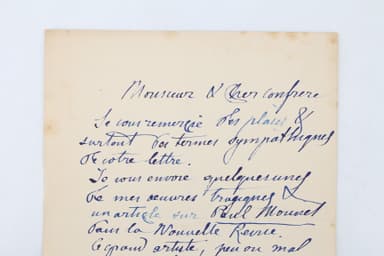 Monsieur & Cher confrere
Je vous remercie des places &
surtout des termes sympathiques
de votre lettre.
Je vous envoie quelques unes
de mes oeuvres tragiques &
un article sur Paul Mounet
dans la Nouvelle Revue.
Ce grand artiste, peu ou mal